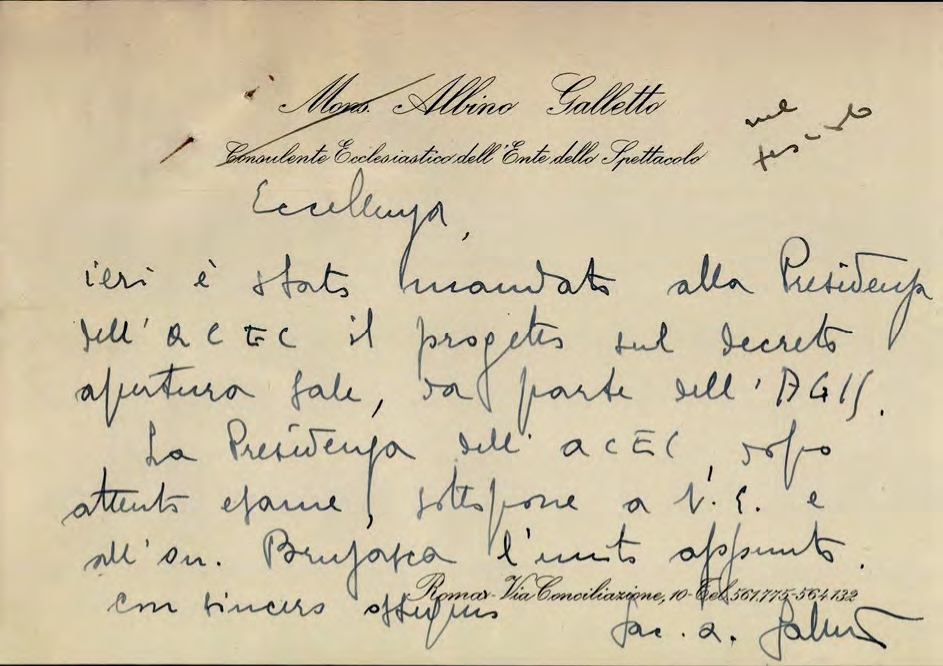 Mons. Albino Galletto
Consulente Ecclesiastico dell'Ente dello Spettacolo
nel
Eccellenza,
ieri è stato mandato alla Presidenza
dell'ACEC il progetto sul decreto
apertura sale, da parte dell'AGIS.
La Presidenza dell'ACEC, dopo
attento esame, sottopone a V.E. e
all'on. Brusasca l'unito appunto.
Roma - Via Conciliazione, 10 - Tel. 561.775-564.132
con sincero ossequio
Sac. A. Galletto